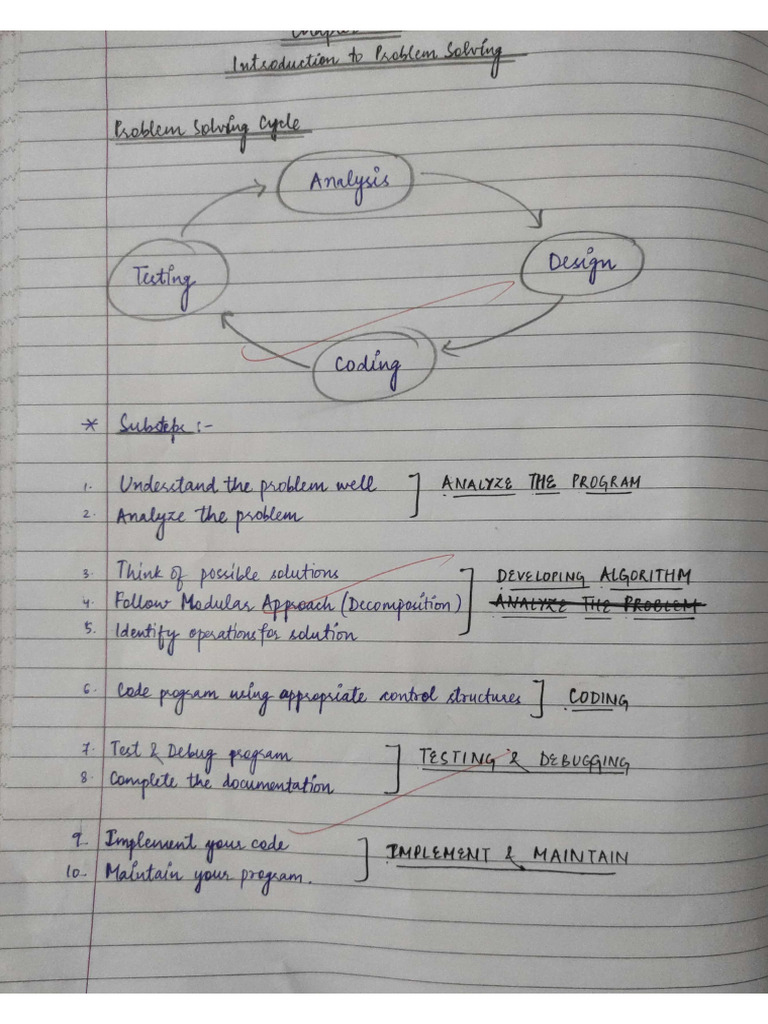 Introduction to Problem Solving
Problem Solving Cycle
Analysis
Design
Testing
Coding
* Substeps :-
1. Understand the problem well ] ANALYZE THE PROGRAM
2. Analyze the problem
3. Think of possible solutions ] DEVELOPING ALGORITHM
4. Follow Modular Approach (Decomposition) ANALYZE THE PROBLEM
5. Identify operations for solution
6. Code program using appropriate control structures ] CODING
7. Test & Debug program ] TESTING & DEBUGGING
8. Complete the documentation
9. Implement your code ] IMPLEMENT & MAINTAIN
10. Maintain your program.